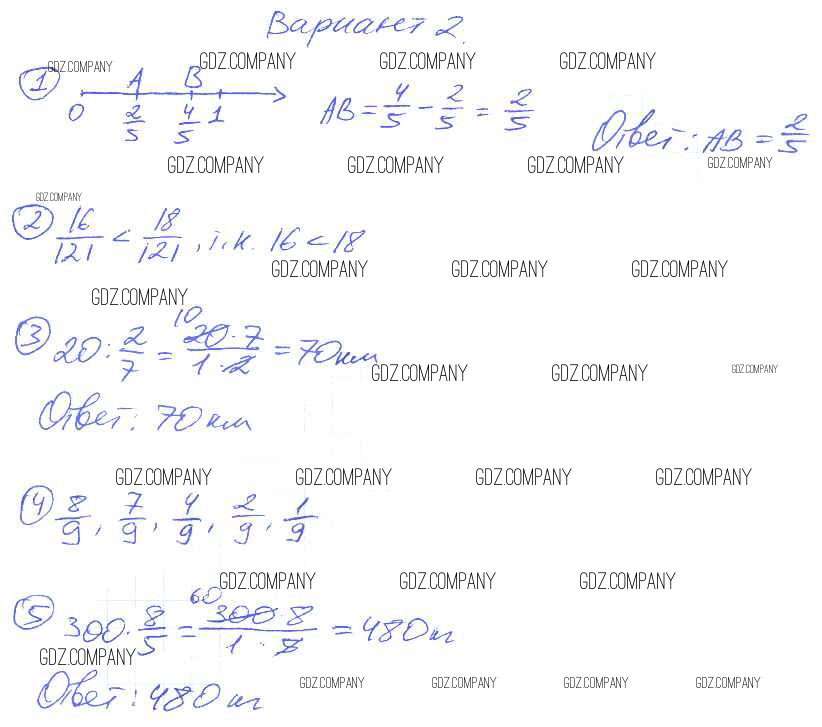 Вариант 2.
GDZ.COMPANY GDZ.COMPANY GDZ.COMPANY GDZ.COMPANY
1 A B
0 2/5 4/5 1 AB = 4/5 - 2/5 = 2/5 Ответ: AB = 2/5
GDZ.COMPANY GDZ.COMPANY GDZ.COMPANY GDZ.COMPANY
GDZ.COMPANY
2 16/121 < 18/121, т.к. 16 < 18
GDZ.COMPANY GDZ.COMPANY GDZ.COMPANY
GDZ.COMPANY
10
3 20 : 2/7 = 20·7/1·2 = 70 км
GDZ.COMPANY GDZ.COMPANY GDZ.COMPANY
Ответ: 70 км
GDZ.COMPANY GDZ.COMPANY GDZ.COMPANY GDZ.COMPANY
4 8/9, 7/9, 4/9, 2/9, 1/9
GDZ.COMPANY GDZ.COMPANY GDZ.COMPANY
60
5 300 · 8/5 = 300·8/1·5 = 480 кг
GDZ.COMPANY
Ответ: 480 кг
GDZ.COMPANY GDZ.COMPANY GDZ.COMPANY GDZ.COMPANY